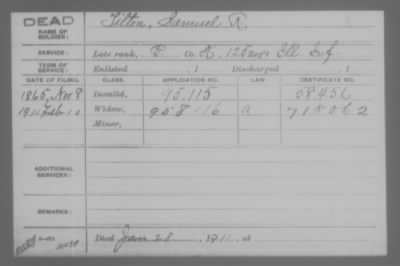 DEAD
NAME OF SOLDIER: Tilton, Samuel R.
SERVICE: Late rank, P. Co. K, 125 Reg't Ill. Inf.
TERM OF SERVICE: Enlisted , 1 Discharged , 1
DATE OF FILING. CLASS. APPLICATION NO. LAW. CERTIFICATE NO.
1865, Nov 8 Invalid, 95.115 58456
1911 Feb 10 Widow, 958116 a 718062
Minor,
ADDITIONAL SERVICES:
REMARKS:
Died Jan 28, 1911, at